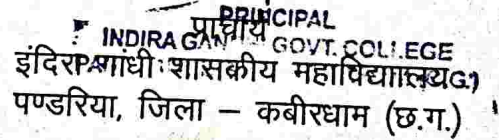 प्राचार्य
PRINCIPAL
INDIRA GAN GOVT. COLLEGE
इंदिरा गांधी शासकीय महाविद्यालय
पण्डरिया, जिला – कबीरधाम (छ.ग.)